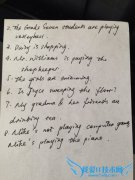 2. The Goods Seven students are playing
volleyball.
3. Daisy is shopping.
4. Mr. Williams is paying the
shopkeeper.
5. The girls are swimming.
6. Is Joyce sweeping the floor?
7. My grandma & her friends are
drinking tea.
8. Mike's not playing computer games,
Mike's playing the piano.